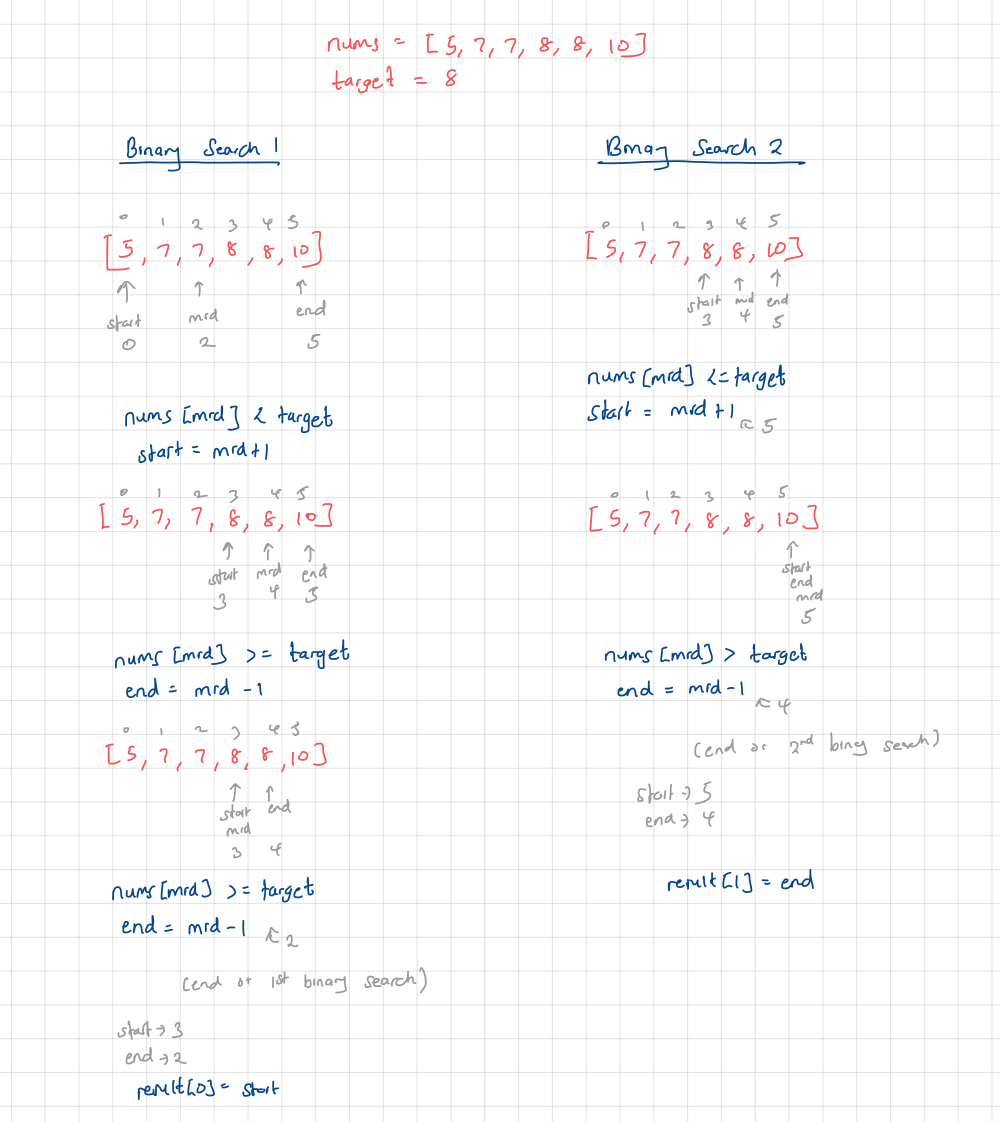 nums = [5, 7, 7, 8, 8, 10]
target = 8
Binary Search 1
0 1 2 3 4 5
[5, 7, 7, 8, 8, 10]
start mid end
0 2 5
nums [mid] < target
start = mid+1
0 1 2 3 4 5
[5, 7, 7, 8, 8, 10]
start mid end
3 4 5
nums [mid] >= target
end = mid -1
0 1 2 3 4 5
[5, 7, 7, 8, 8, 10]
start end
mid
3 4
nums [mid] >= target
end = mid -1 ↖ 2
(end of 1st binary search)
start → 3
end → 2
result[0] = start
Binay Search 2
0 1 2 3 4 5
[5, 7, 7, 8, 8, 10]
start mid end
3 4 5
nums [mid] <= target
start = mid +1 ↖ 5
0 1 2 3 4 5
[5, 7, 7, 8, 8, 10]
start
end
mid
5
nums [mid] > target
end = mid -1 ↖ 4
(end of 2nd search)
start → 5
end → 4
result[1] = end